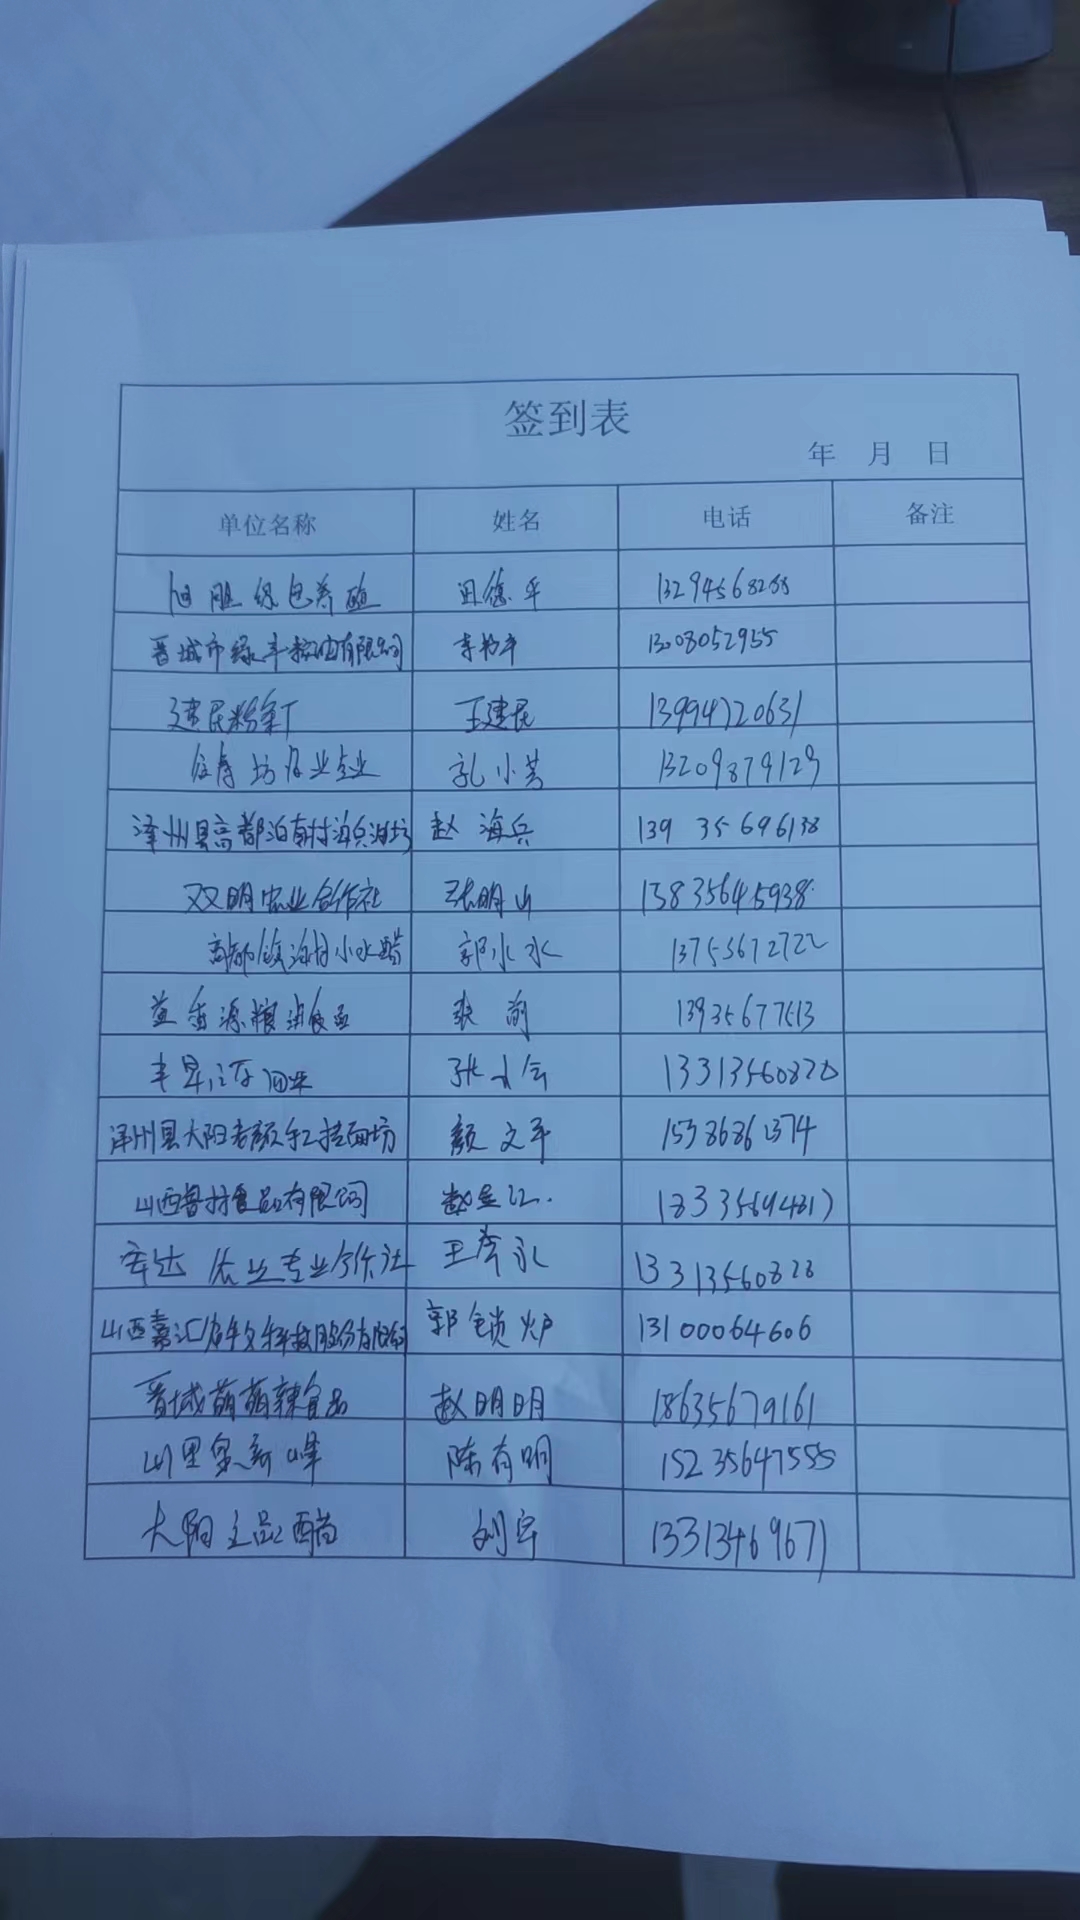 签到表
年 月 日
单位名称 姓名 电话 备注
田德平 13294568288
晋城市绿丰粮油有限公司 13008052955
建民粉条厂 王建民 13994720631
孔小芳 13209879129
泽州县高都泊南村海兵油坊 赵海兵 13935696138
双明农业合作社 张明山 13835645938
郭小水 13753672722
益香源粮油食品 张莉 13935677513
13313560820
泽州县大阳老颜手工挂面坊 颜文平 15386861374
山西鲁村食品有限公司 18335694817
宏达农业专业合作社 13313560828
山西嘉汇农牧科技股份有限公司 郭锁炉 13100064606
晋城萌萌辣食品 赵明明 18635679161
陈有明 15235647555
大阳 醋 刘宇 13313469671